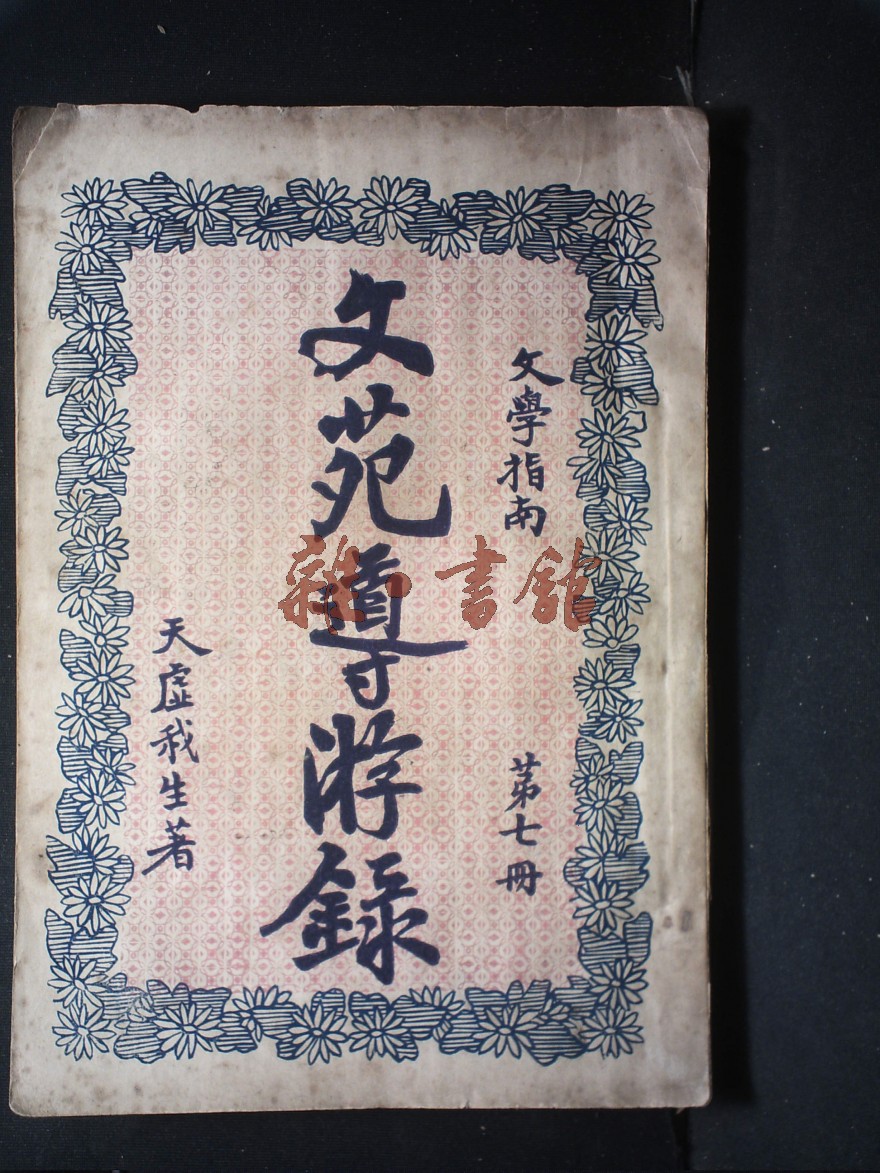 文學指南
第七冊
文苑導游錄
天虛我生著
雜書館